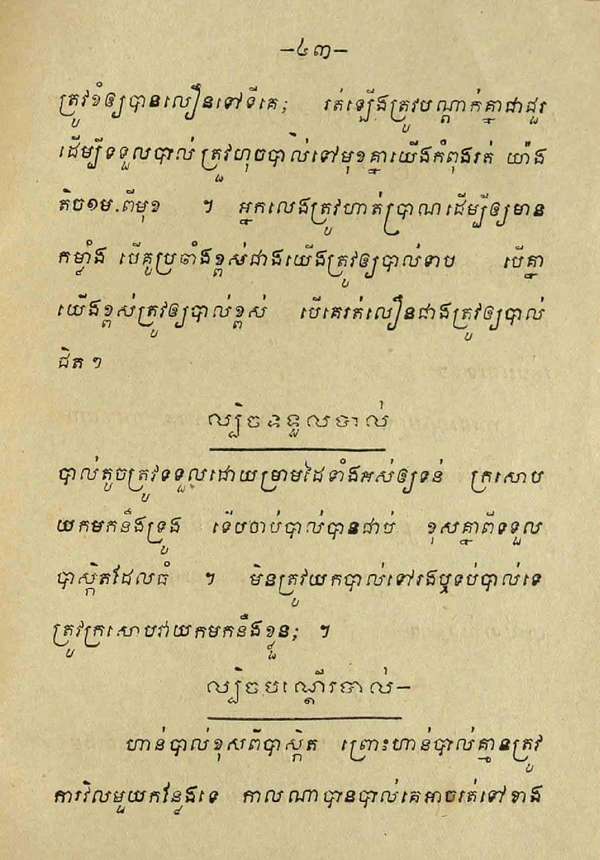 —៤៣—
ត្រូវខំឲ្យបានលឿនទៅទីគេ; រត់ឡើងត្រូវបណ្ដាក់គ្នាជាជួរ
ដើម្បីទទួលបាល់ ត្រូវហុចបាល់ទៅមុខគ្នាយើងកំពុងរត់ យ៉ាង
តិច១ម.ពីមុខ ។ អ្នកលេងត្រូវហាត់ប្រាណដើម្បីឲ្យមាន
កម្លាំង បើគូប្រចាំងខ្ពស់ជាងយើងត្រូវឲ្យបាល់ទាប បើគ្នា
យើងខ្ពស់ត្រូវឲ្យបាល់ខ្ពស់ បើគេរត់លឿនជាងត្រូវឲ្យបាល់
ជិត ៗ
ល្បិចទទួលបាល់
បាល់តូចត្រូវទទួលដោយម្រាមដៃទាំងអស់ឲ្យទន់ ក្រសោប
យកមកនឹងទ្រូង ទើបចាប់បាល់បានជាប់ ខុសគ្នាពីទទួល
បាស្កិតដែលធំ ។ មិនត្រូវយកបាល់ទៅរងឬទប់បាល់ទេ
ត្រូវក្រសោបវាយកមកនឹងខ្លួន; ។
ល្បិចបណ្តើរបាល់—
ហាន់បាល់ខុសពីបាស្កិត ព្រោះហាន់បាល់គ្មានត្រូវ
ការវិលមួយកន្លែងទេ កាលណាបានបាល់គេអាចរត់ទៅខាង